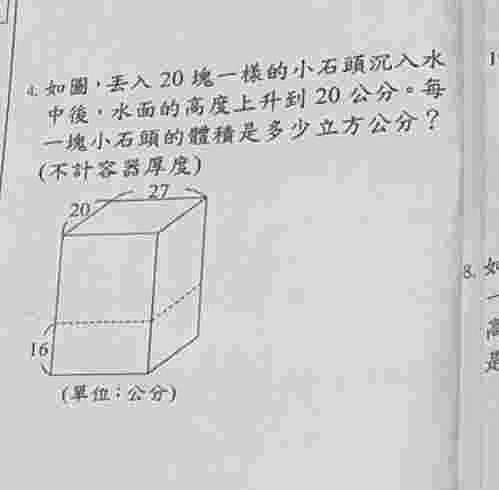 4. 如圖，丟入 20 塊一樣的小石頭沉入水
中後，水面的高度上升到 20 公分。每
一塊小石頭的體積是多少立方公分？
(不計容器厚度)
20 27
16
(單位：公分)
1
8. 如
一
高
是